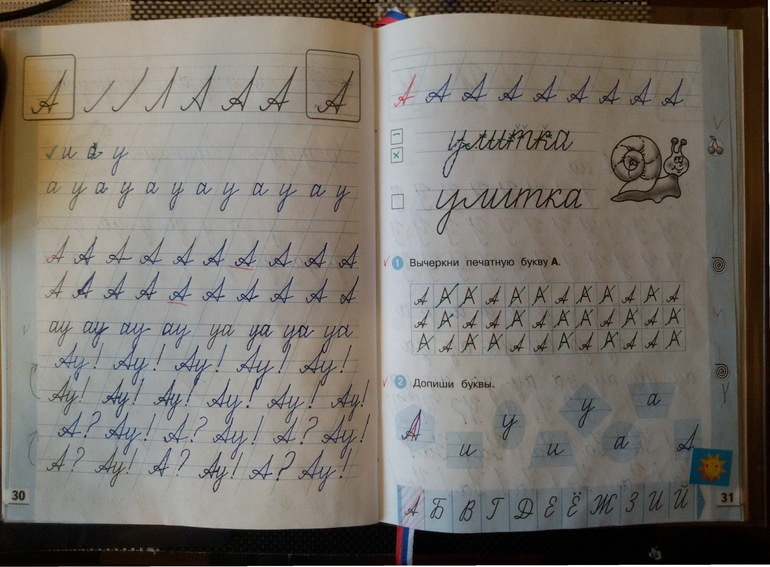 А А А А А
и а у
а у а у а у а у а у а у
А А А А А А А А А А
А А А А А А А А А А
ау ау ау ау уа уа уа уа
Ау! Ау! Ау! Ау! Ау!
Ау! Ау! Ау! Ау! Ау! Ау!
А? Ау! А? Ау! А? Ау!
А? Ау! А? Ау! А? Ау!
30
А А А А А А А А
улитка
улитка
1 Вычеркни печатную букву А.
А А А А А А А А А А А А
А А А А А А А А А А А А
А А А А А А А А А А А А
2 Допиши буквы.
А и у и у а а А
А Б В Г Д Е Ё Ж З И Й
31